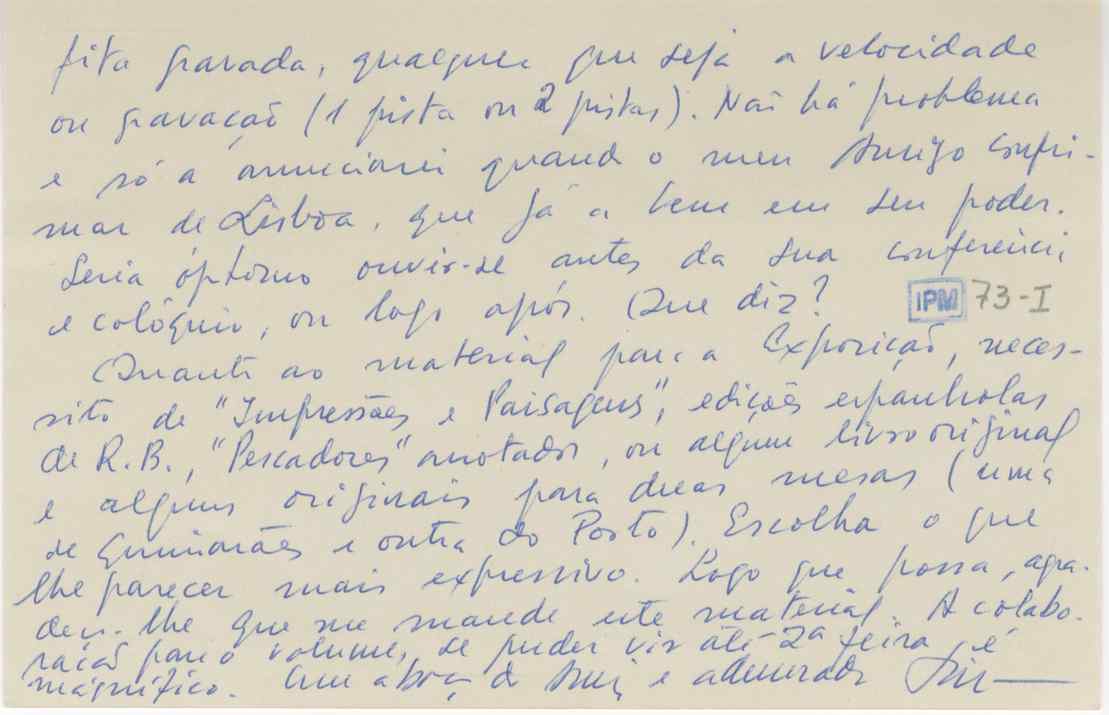 fita gravada, qualquer que seja a velocidade
ou gravação (1 pista ou 2 pistas). Não há problema
e só a anunciarei quando o meu Amigo confir-
mar de Lisboa, que já a tem em seu poder.
Seria óptimo ouvir-se antes da sua conferência
e colóquio, ou logo após. Que diz?
IPM 73-I
Quanto ao material para a Exposição, neces-
sito de "Impressões e Paisagens", edições espanholas
de R.B., "Pescadores" anotados, ou algum livro original
e alguns originais para duas mesas (uma
de Guimarães e outra do Porto). Escolha o que
lhe parecer mais expressivo. Logo que possa, agra-
deço-lhe que me mande este material. A colabo-
ração para o volume, se puder vir até 2ª feira, é
magnífico. Um abraço do amigo e admirador